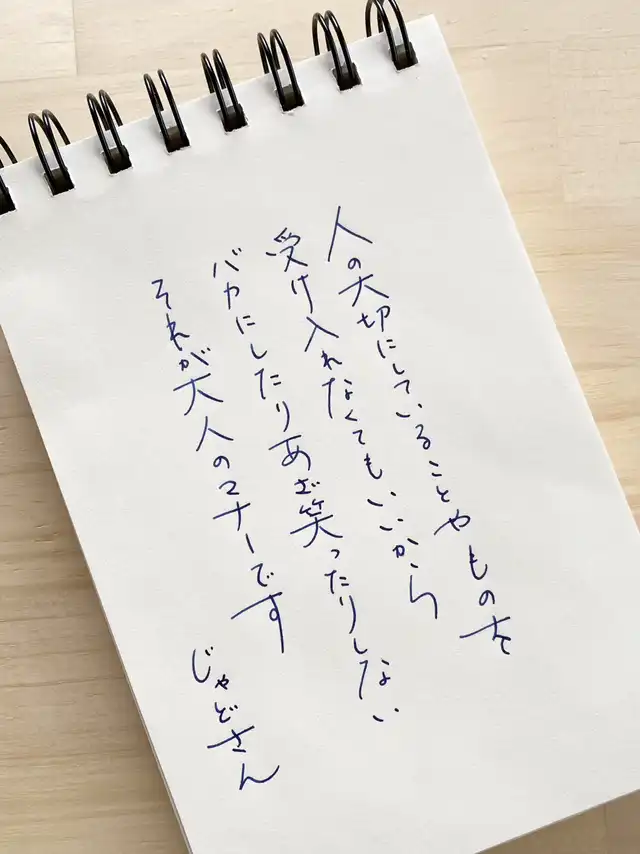 人の大切にしていることやものを
受け入れなくてもいいから
バカにしたりあざ笑ったりしない
それが大人のマナーです
じゃどさん